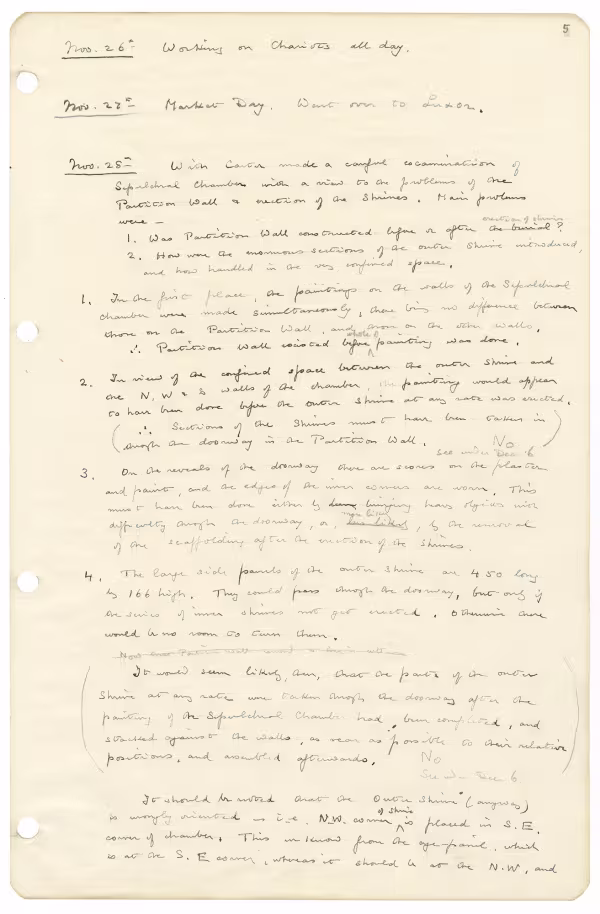 5
Nov. 26th Working on Chariots all day.
Nov. 27th Market Day. Went over to Luxor.
Nov. 28th With Carter made a careful examination of
Sepulchral Chamber with a view to the problems of the
Partition Wall & erection of the Shrines. Main problems
were –
erection of shrines
1. Was Partition Wall constructed before or after the burial?
2. How were the enormous sections of the outer shrine introduced,
and how handled in the very confined space.
1. In the first place, the paintings on the walls of the Sepulchral
chamber were made simultaneously, there being no difference between
those on the Partition Wall, and those on the other walls.
whole of
∴ Partition Wall existed before painting was done.
2. In view of the confined space between the outer shrine and
the N, W & S walls of the chamber, the painting would appear
to have been done before the outer shrine at any rate was erected.
∴ Sections of the shrines must have been taken in
through the doorway in the Partition Wall. No
see under Dec 6
3. On the reveals of the doorway there are scores on the plaster
and paint, and the edges of the inner corners are worn. This
must have been done either by bringing heavy objects with
more likely
difficulty through the doorway, or, less likely, by the removal
of the scaffolding after the erection of the shrines.
4. The large side panels of the outer shrine are 450 long
by 166 high. They could pass through the doorway, but only if
the series of inner shrines not yet erected. Otherwise there
would be no room to turn them.
It would seem likely, then, that the parts of the outer
shrine at any rate were taken through the doorway after the
painting of the Sepulchral Chamber had been completed, and
stacked against the walls, as near as possible to their relative
positions, and assembled afterwards. No
See under Dec 6
It should be noted that the Outer Shrine (anyway)
of shrine
is wrongly oriented as i.e. N.W. corner is placed in S.E.
corner of chamber. This we know from the eye-panel, which
is at the S.E corner, whereas it should be at the N.W, and